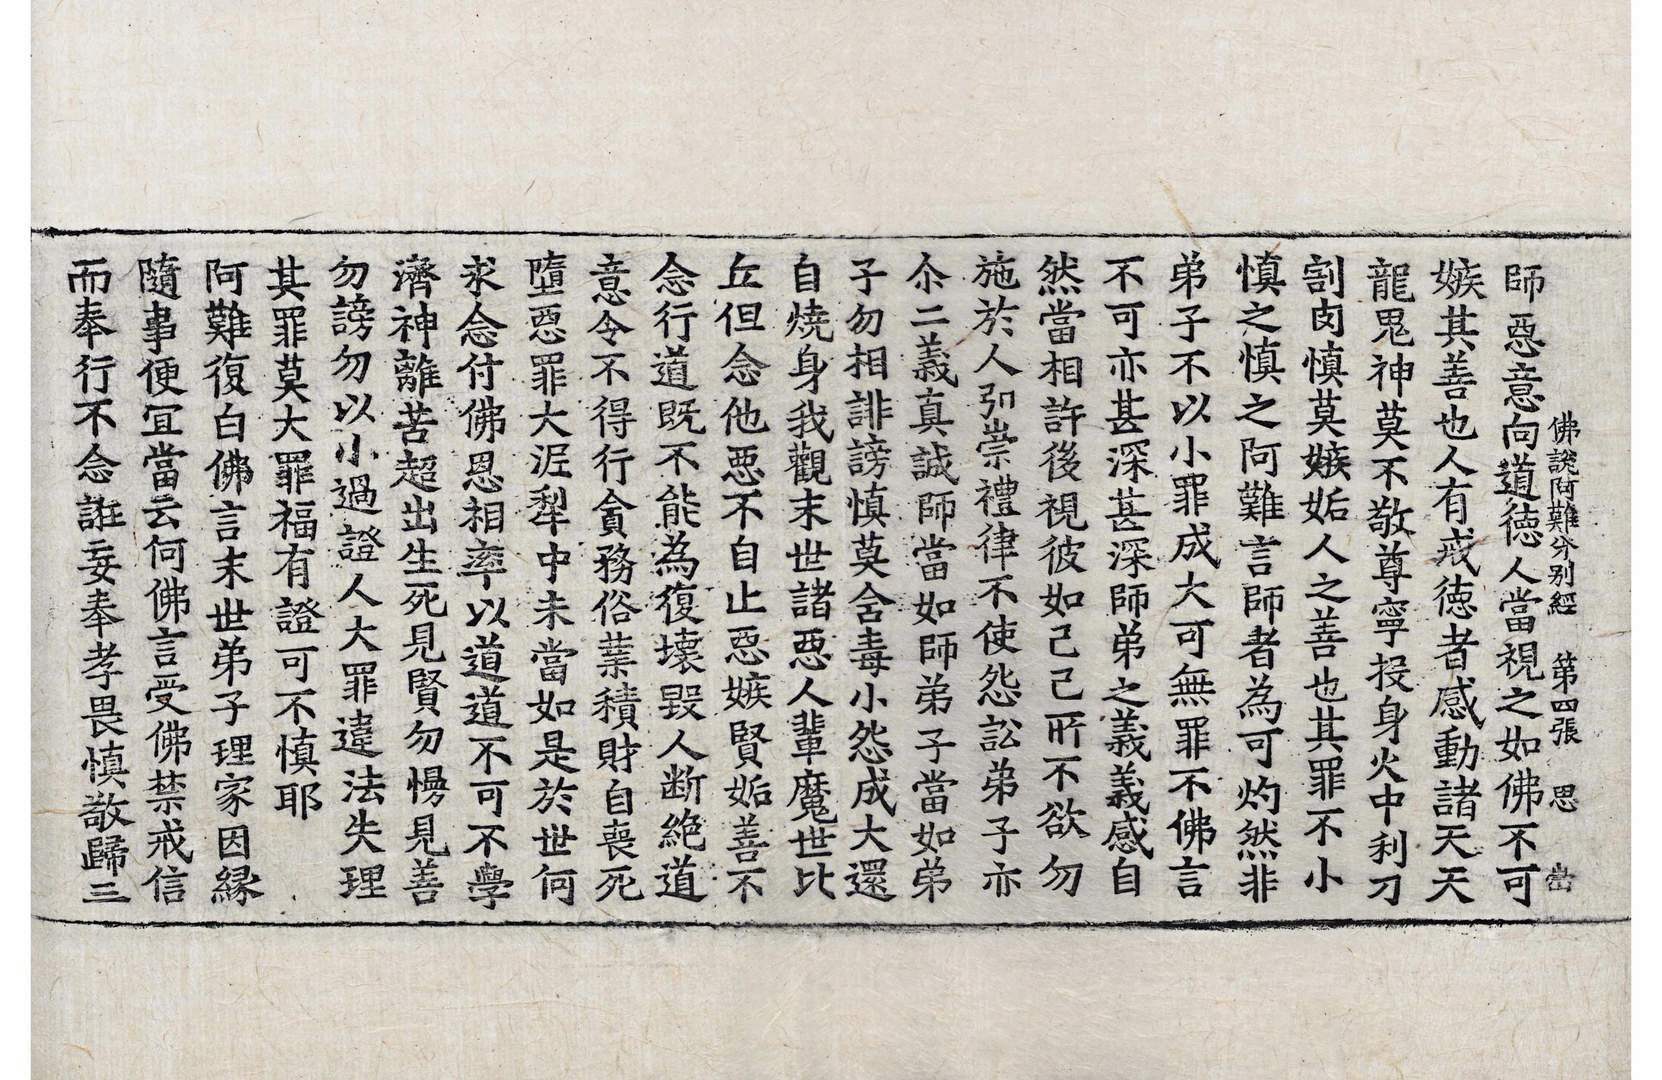 佛說阿難分別經 第四張 思 當
師惡意向道德人當視之如佛不可
嫉其善也人有戒德者感動諸天天
龍鬼神莫不敬尊寧投身火中利刀
割肉慎莫嫉妬人之善也其罪不小
慎之慎之阿難言師者為可灼然非
弟子不以小罪成大可無罪不佛言
不可亦甚深甚深師弟之義義感自
然當相許後視彼如己己所不欲勿
施於人引崇禮律不使怨訟弟子亦
尒二義真誠師當如師弟子當如弟
子勿相誹謗慎莫含毒小怨成大還
自燒身我觀末世諸惡人輩魔世比
丘但念他惡不自止惡嫉賢妬善不
念行道既不能為復壞毀人斷絶道
意令不得行貪務俗業積財自喪死
墮惡罪大泥犁中未當如是於世何
求念付佛恩相率以道道不可不學
濟神離苦超出生死見賢勿慢見善
勿謗勿以小過證人大罪違法失理
其罪莫大罪福有證可不慎耶
阿難復白佛言末世弟子理家因緣
隨事便宜當云何佛言受佛禁戒信
而奉行不念誑妄奉孝畏慎敬歸三